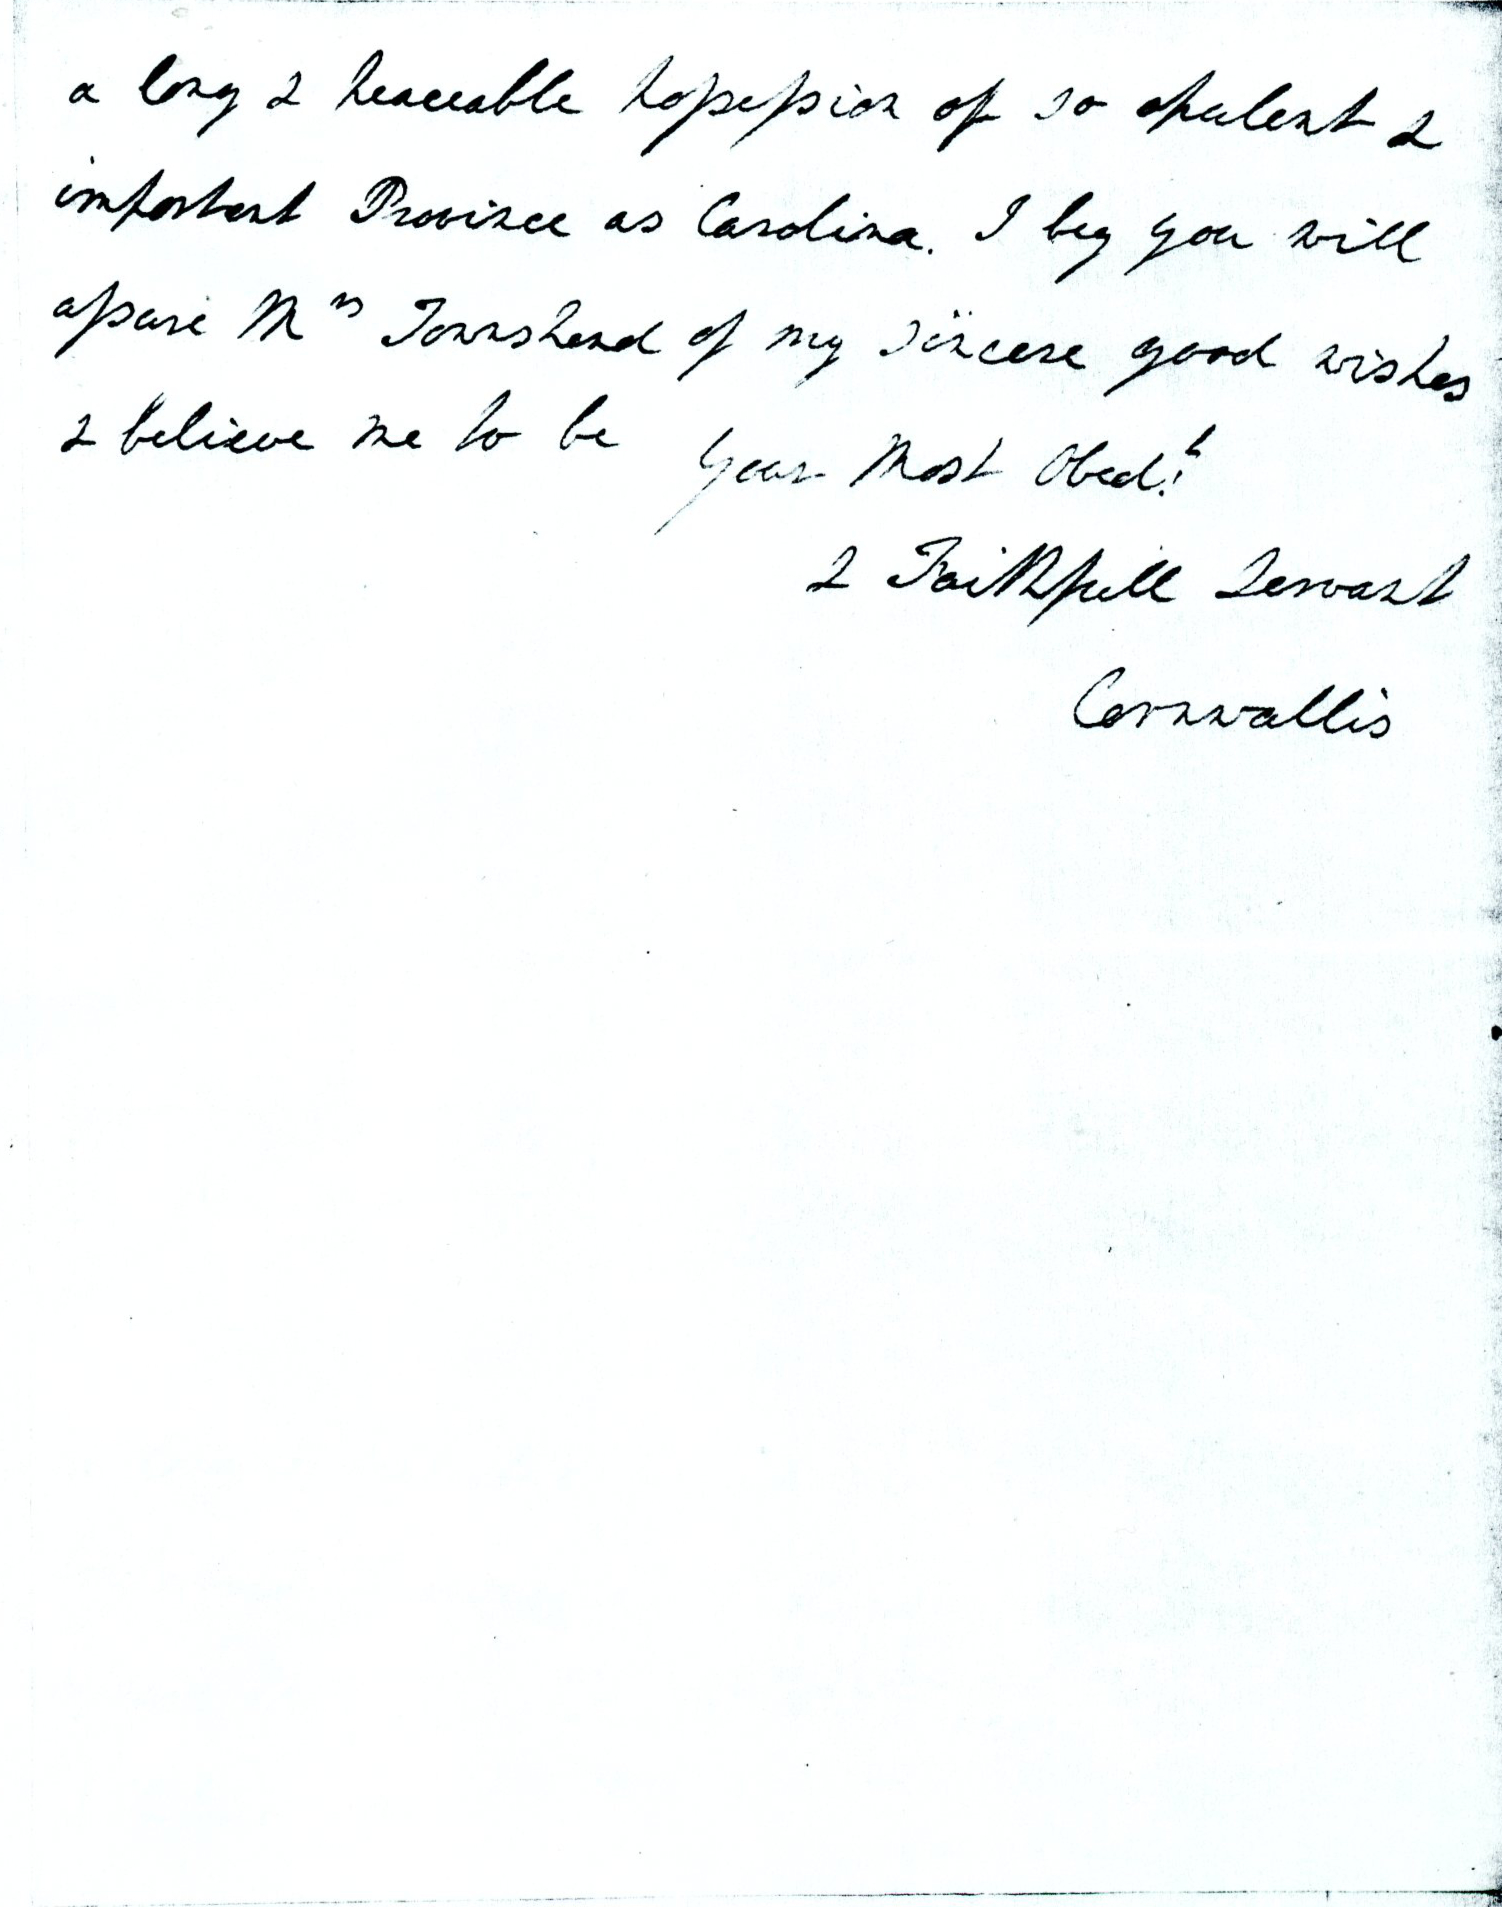 a long & peaceable possession of so opulent &
important Province as Carolina. I beg you will
assure Mrs Townshend of my sincere good wishes
& believe me to be Your Most Obed.t
& Faithfull Servant
Cornwallis